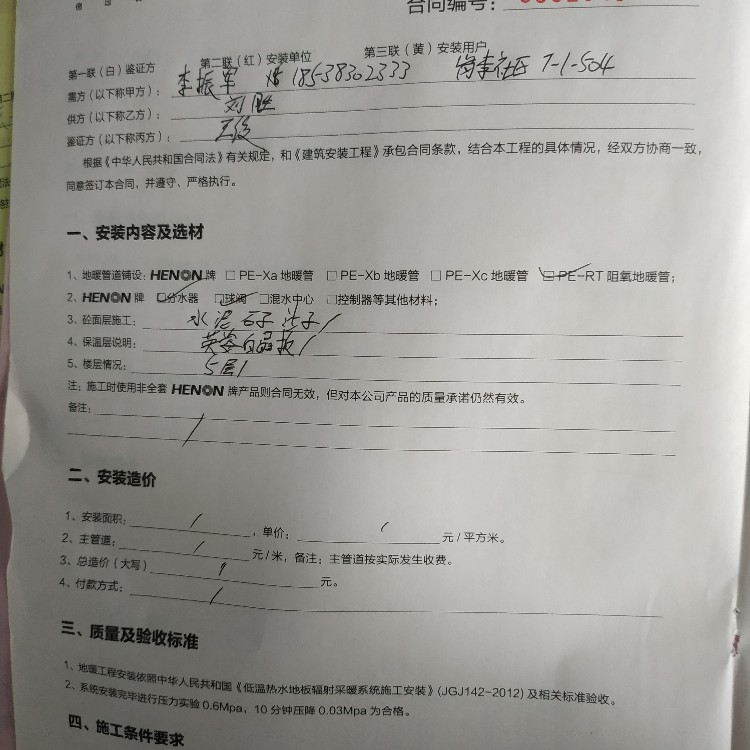 德 国
合同编号：
第一联（白）鉴证方 第二联（红）安装单位 第三联（黄）安装用户
需方（以下称甲方）： 李振军 18538302333 岗李社区 7-1-504
供方（以下称乙方）： 刘胜
鉴证方（以下称丙方）：
根据《中华人民共和国合同法》有关规定，和《建筑安装工程》承包合同条款，结合本工程的具体情况，经双方协商一致，
同意签订本合同，并遵守、严格执行。
一、安装内容及选材
1、地暖管道铺设：HENON牌 □PE-Xa 地暖管 □PE-Xb 地暖管 □PE-Xc 地暖管 □PE-RT 阻氧地暖管；
2、HENON 牌 □分水器 □球阀 □混水中心 □控制器等其他材料；
3、砼面层施工： 水泥 石子 沙子/
4、保温层说明： 板/
5、楼层情况： 5层/
注：施工时使用非全套 HENON 牌产品则合同无效，但对本公司产品的质量承诺仍然有效。
备注： /
二、安装造价
1、安装面积： / ，单价： / 元/平方米。
2、主管道： / 元/米，备注：主管道按实际发生收费。
3、总造价（大写） / 元。
4、付款方式： /
三、质量及验收标准
1、地暖工程安装依照中华人民共和国《低温热水地板辐射采暖系统施工安装》(JGJ142-2012)及相关标准验收。
2、系统安装完毕进行压力实验 0.6Mpa，10 分钟压降 0.03Mpa 为合格。
四、施工条件要求